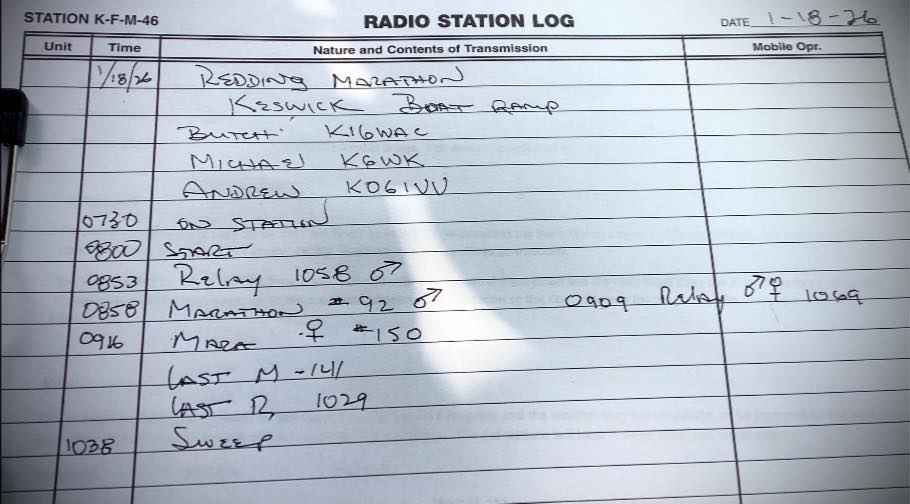 STATION K-F-M-46 RADIO STATION LOG DATE 1-18-26
Unit Time Nature and Contents of Transmission Mobile Opr.
1/18/26 REDDING MARATHON
KESWICK BOAT RAMP
BUTCH KI6WAC
MICHAEL K6WK
ANDREW KO6IVV
0730 ON STATION
0800 START
0853 Relay 1058 ♂
0858 MARATHON #92 ♂ 0909 Relay ♂♀ 1069
0916 MARA ♀ #150
LAST M - 141
LAST R 1029
1038 SWEEP